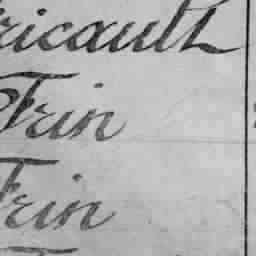 ricault
Frin
Frin